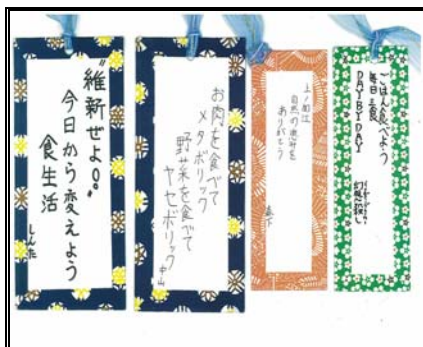 "維新ぜよ!!"
今日から変えよう
食生活
しんた
お肉を食べて
メタボリック
野菜を食べて
ヤセボリック
中山
上ノ国は
自然の恵みを
ありがとう
森下
ごはん食べよう
毎日三食
DAY BY DAY
幻想殺し